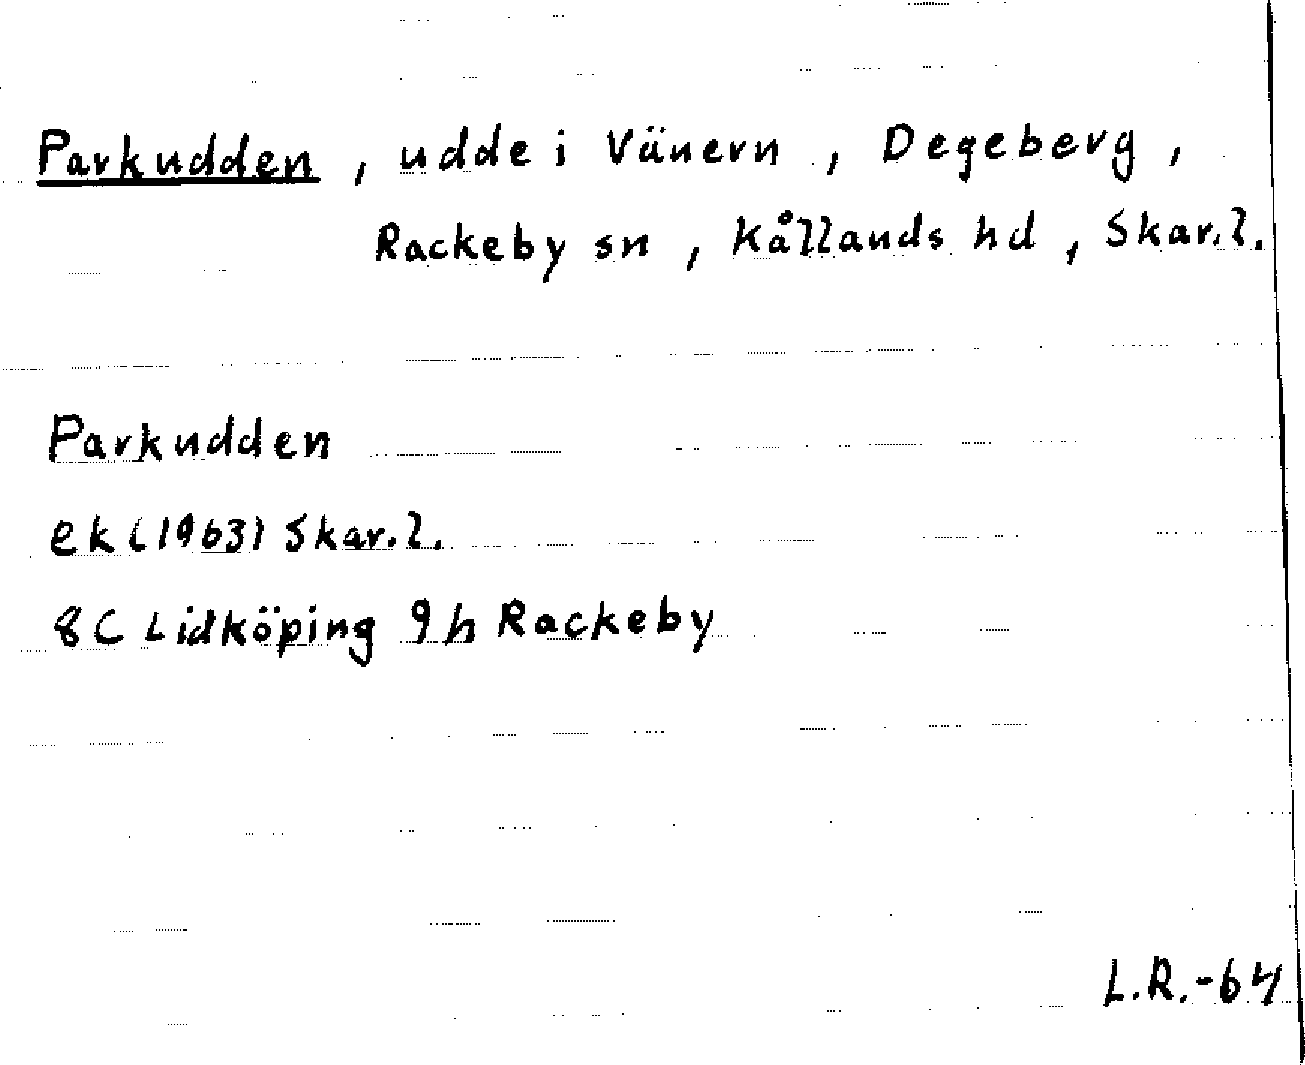 Parkudden, udde i Vänern, Degeberg,
Rackeby sn, Kållands hd, Skar.l.
Parkudden
ek (1963) Skar.l.
8C Lidköping 9h Rackeby
L.R.-64